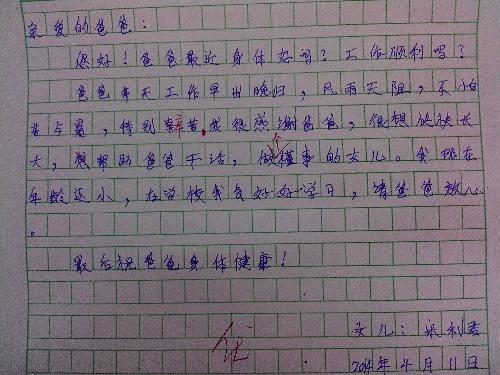 亲爱的爸爸：
您好！爸爸最近身体好吗？工作顺利吗？
爸爸每天工作早出晚归，风雨天阻，不怕
苦与累，特别辛苦。我很感谢爸爸，很想快快长
大，想帮助爸爸干活，做懂事的女儿。我现在
年龄还小，在学校我会好好学习，请爸爸放心
。
最后祝爸爸身体健康！
优
女儿：
2014年4月11日